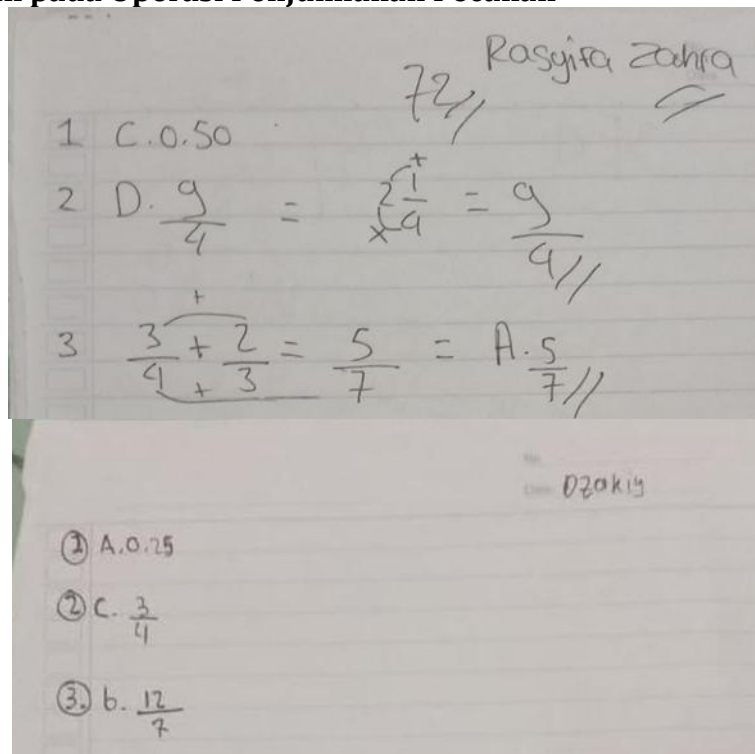 pada Operasi Penjumlahan Pecahan
Rasyifa Zahra
72//
1 C. 0.50
2 D. 9/4 = 2 1/4 + × = 9/4//
3 3/4 + 2/3 = 5/7 = A. 5/7//
+ +
Dzakiy
① A. 0.25
② C. 3/4
③. b. 12/7